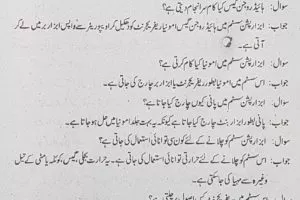 سوال: ہائیڈروجن گیس کیا کام سرانجام دیتی ہے؟
جواب: ابزارپشن سسٹم میں ہائیڈروجن گیس امونیا ریفریجرنٹ کو دھکیل کر ایوپوریٹر سے واپس ابزاربر میں لے کر
آتی ہے۔
سوال: ابزارپشن سسٹم میں امونیا کیا کام کرتی ہے؟
جواب: اس سسٹم میں امونیا بطور ریفریجرنٹ یا ابزاربر چارج کی جاتی ہے۔
سوال: ابزارپشن سسٹم میں پانی کیوں چارج کیا جاتا ہے؟
جواب: پانی بطور ابزاربنٹ چارج کیا جاتا ہے کیونکہ یہ بہت جلد امونیا میں حل ہو جاتا ہے۔
سوال: ابزارپشن سسٹم کو چلانے کے لئے کون سی توانائی استعمال کی جاتی ہے؟
جواب: اس سسٹم کو چلانے کے لئے حرارتی توانائی استعمال کی جاتی ہے۔ یہ حرارت بجلی، گیس، کوئلہ یا مٹی کے تیل
وغیرہ سے مہیا کی جا سکتی ہے۔